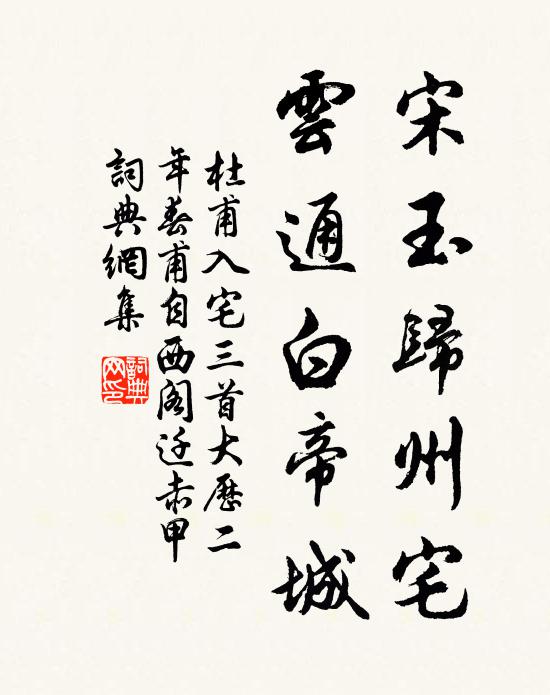 宋玉歸州宅
雲通白帝城
杜甫入宅三首大歷二
年春甫自西閣迁赤甲
詞典網集
詞典网印